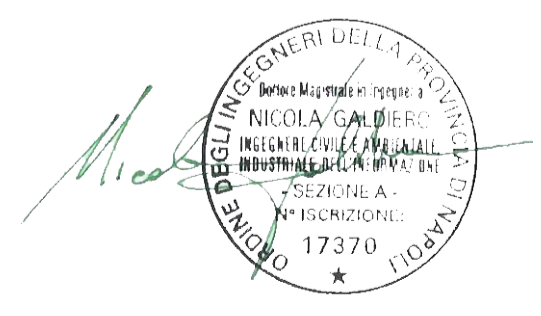 ORDINE DEGLI INGEGNERI DELLA PROVINCIA DI NAPOLI
Dottore Magistrale in Ingegneria
NICOLA GALDIERO
INGEGNERE CIVILE E AMBIENTALE
INDUSTRIALE DELL'INFORMAZIONE
- SEZIONE A -
N° ISCRIZIONE:
17370
★
Nicola